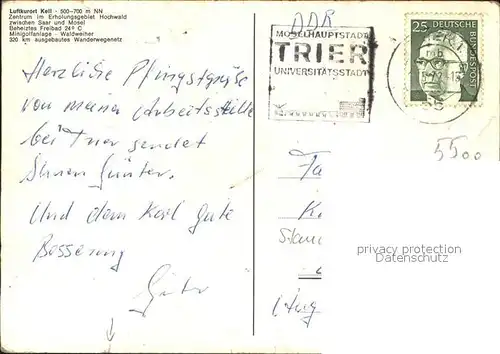 Luftkurort Kell - 500-700 m NN
Zentrum im Erholungsgebiet Hochwald
zwischen Saar und Mosel
Beheiztes Freibad 24° C
Minigolfanlage - Waldweiher
320 km ausgebautes Wanderwegenetz
Herzliche Pfingstgrüße
von meiner Arbeitsstelle
bei Trier sendet
Ihnen Günter.
Und dem Karl gute
Besserung
Günter
DDR
MOSELHAUPTSTADT
TRIER
UNIVERSITÄTSSTADT
25
DEUTSCHE
BUNDESPOST
5500
privacy protection
for this item